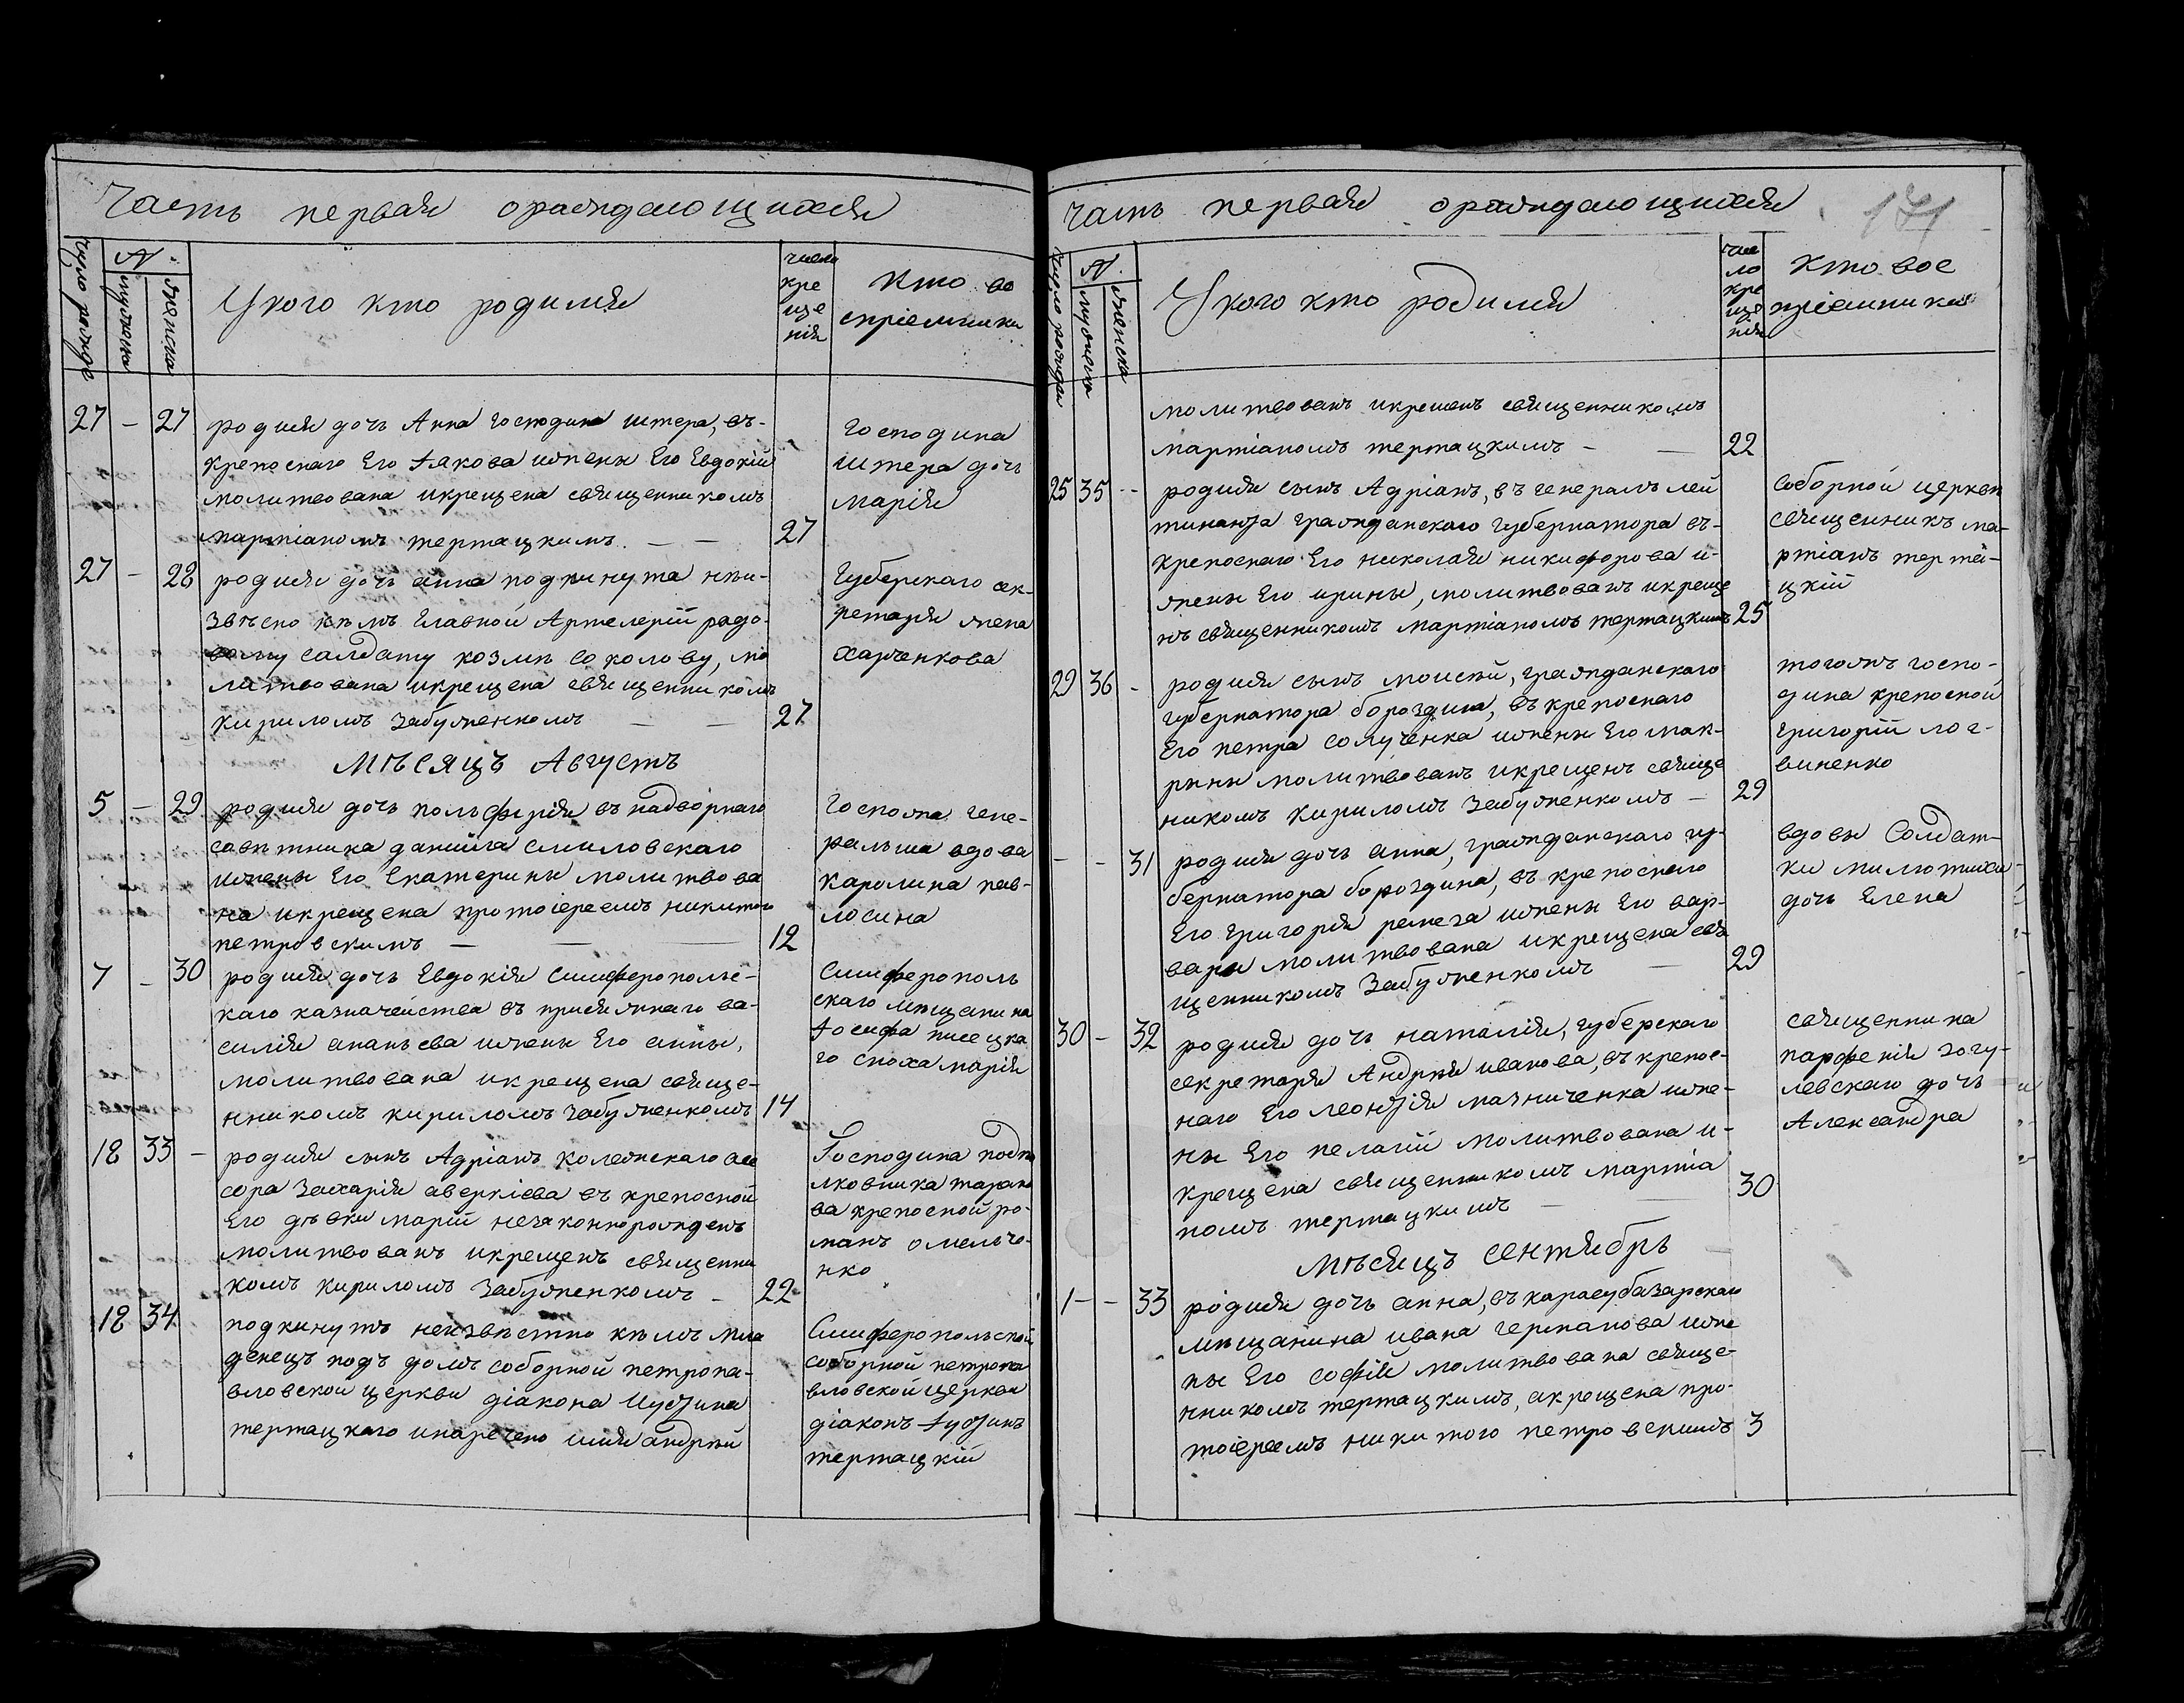 Часть первая ораждающихся
число рожде
№
мужеска
женска
Укого кто родился
число
кре
ще
нія
Кто во
спріемники
27 – 27 родися дочь Анна господина штера, въ-
крепоснаго Его Іакова ижены Его Евдокіи
молитвована икрещена священникомъ
мартіаномъ тертацкимъ. — — 27
Господина
штера дочь
марія
27 – 28 родися дочь анна подкинута нѣи-
звѣсно кѣмъ Главной Артелеріи рядо-
вому салдату козмѣ соколову, мо
литвована икрещена священникомъ
кириломъ забуженкомъ — — 27
Губерскаго сек-
ретаря жена
харченкова
Мѣсяцъ Августъ
5 – 29 родися дочь польфирія въ надворнаго
савѣтника даніила смиловскаго
ижены Его Екатерины молитвова
на икрещена протоіереемъ никитою
петровскимъ — — — 12
Госпожа гене-
ральша вдова
каролина пав-
лосина
7 – 30 родися дочь Евдокія симферополс-
каго казначейства въ присяжнаго ва-
силія ананьева ижены Его анны,
молитвована икрещена свяще-
нникомъ кириломъ забуженкомъ 14
Симферополь
скаго мѣщанина
Іосифа писецка
го сноха марія
18 33 – родися сынъ Адріанъ колежскаго асе
сора захарія аверкіева въ крепосной
Его дѣвки маріи незаконнорожденъ
молитвованъ икрещенъ священни
комъ кириломъ Забуженкомъ – 22
Господина подпо
лковника тарано
ва крепосной ро-
манъ омельче-
нко
18 34 подкинутъ неизвѣстно кѣмъ мла
денецъ подъ домъ соборной петропа-
вловской церкви діакона Иустина
тертацкаго инаречено имя андрѣй
Симферопольской
соборной петропа
вловской церкви
діаконъ Іустинъ
тертацкій
Часть первая ораждающихся
171
число рожден
№
мужеска
женска
Укого кто родился
чис
ло
кре
ще
нія
кто вос
пріемники
молитвованъ икрещенъ священникомъ
мартіаномъ тертацкимъ – — 22
25 35 – родися сынъ Адріанъ, въ генералъ лей
тинанта гражданскаго губернатора въ-
крепоснаго Его николая никифорова и-
жены Его ирины, молитвованъ икреще
нъ священникомъ мартіаномъ тертацкимъ 25
Соборной церкви
священникъ ма-
ртіанъ терта-
цкій
29 36 – родися сынъ моисей, гражданскаго
губернатора бороздина, въ крепоснаго
Его петра солученка ижены Его мак-
рины молитвованъ икрещенъ свяще
никомъ кириломъ забуженкомъ — 29
тогожъ госпо-
дина крепосной
григорій лог-
виненко
– – 31 родися дочь анна, гражданскаго гу-
бернатора бороздина, въ крепоснаго
Его григорія ремеза ижены Его вар-
вары молитвована икрещена свя
щенникомъ Забуженкомъ — 29
вдовы Солдат-
ки милютихи
дочь Елена
30 – 32 родися дочь наталія, губерскаго
секретаря Андрѣя иванова, въ крепос-
наго Его леонтія мазниченка иже-
ны Его пелагіи молитвована и-
крещена священникомъ мартіа
номъ тертацкимъ — 30
священника
парфенія загу-
левскаго дочь
Александра
мѣсяцъ сентябрь
1 – – 33 родися дочь анна, въ карасубазарскаго
мѣщанина ивана германова иже
ны Его софіи молитвована свяще-
нникомъ тертацкимъ, акрещена про-
тоіереемъ никитою петровскимъ 3